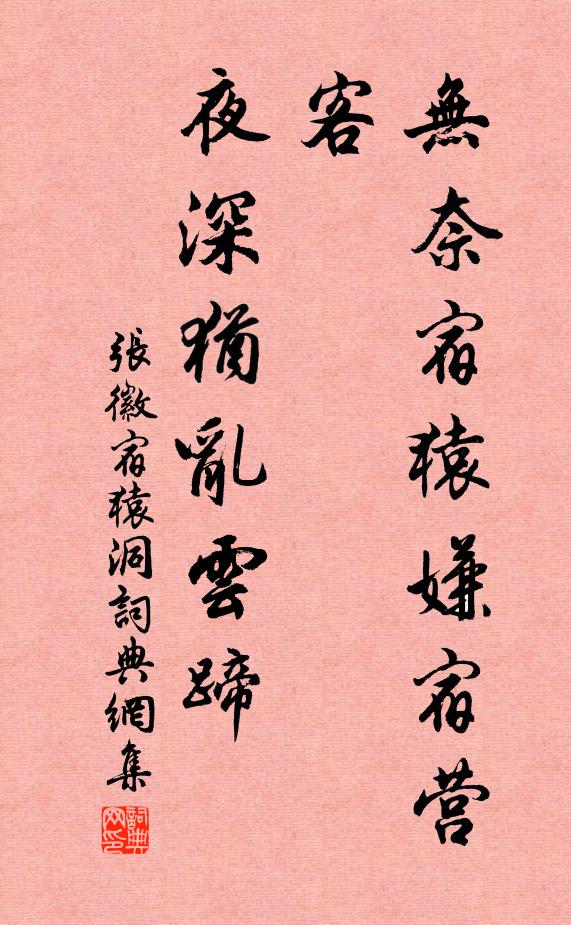 無奈宿猿嫌宿营
客
夜深猶亂雲蹄
張徽宿猿洞詞典網集
詞典
网印